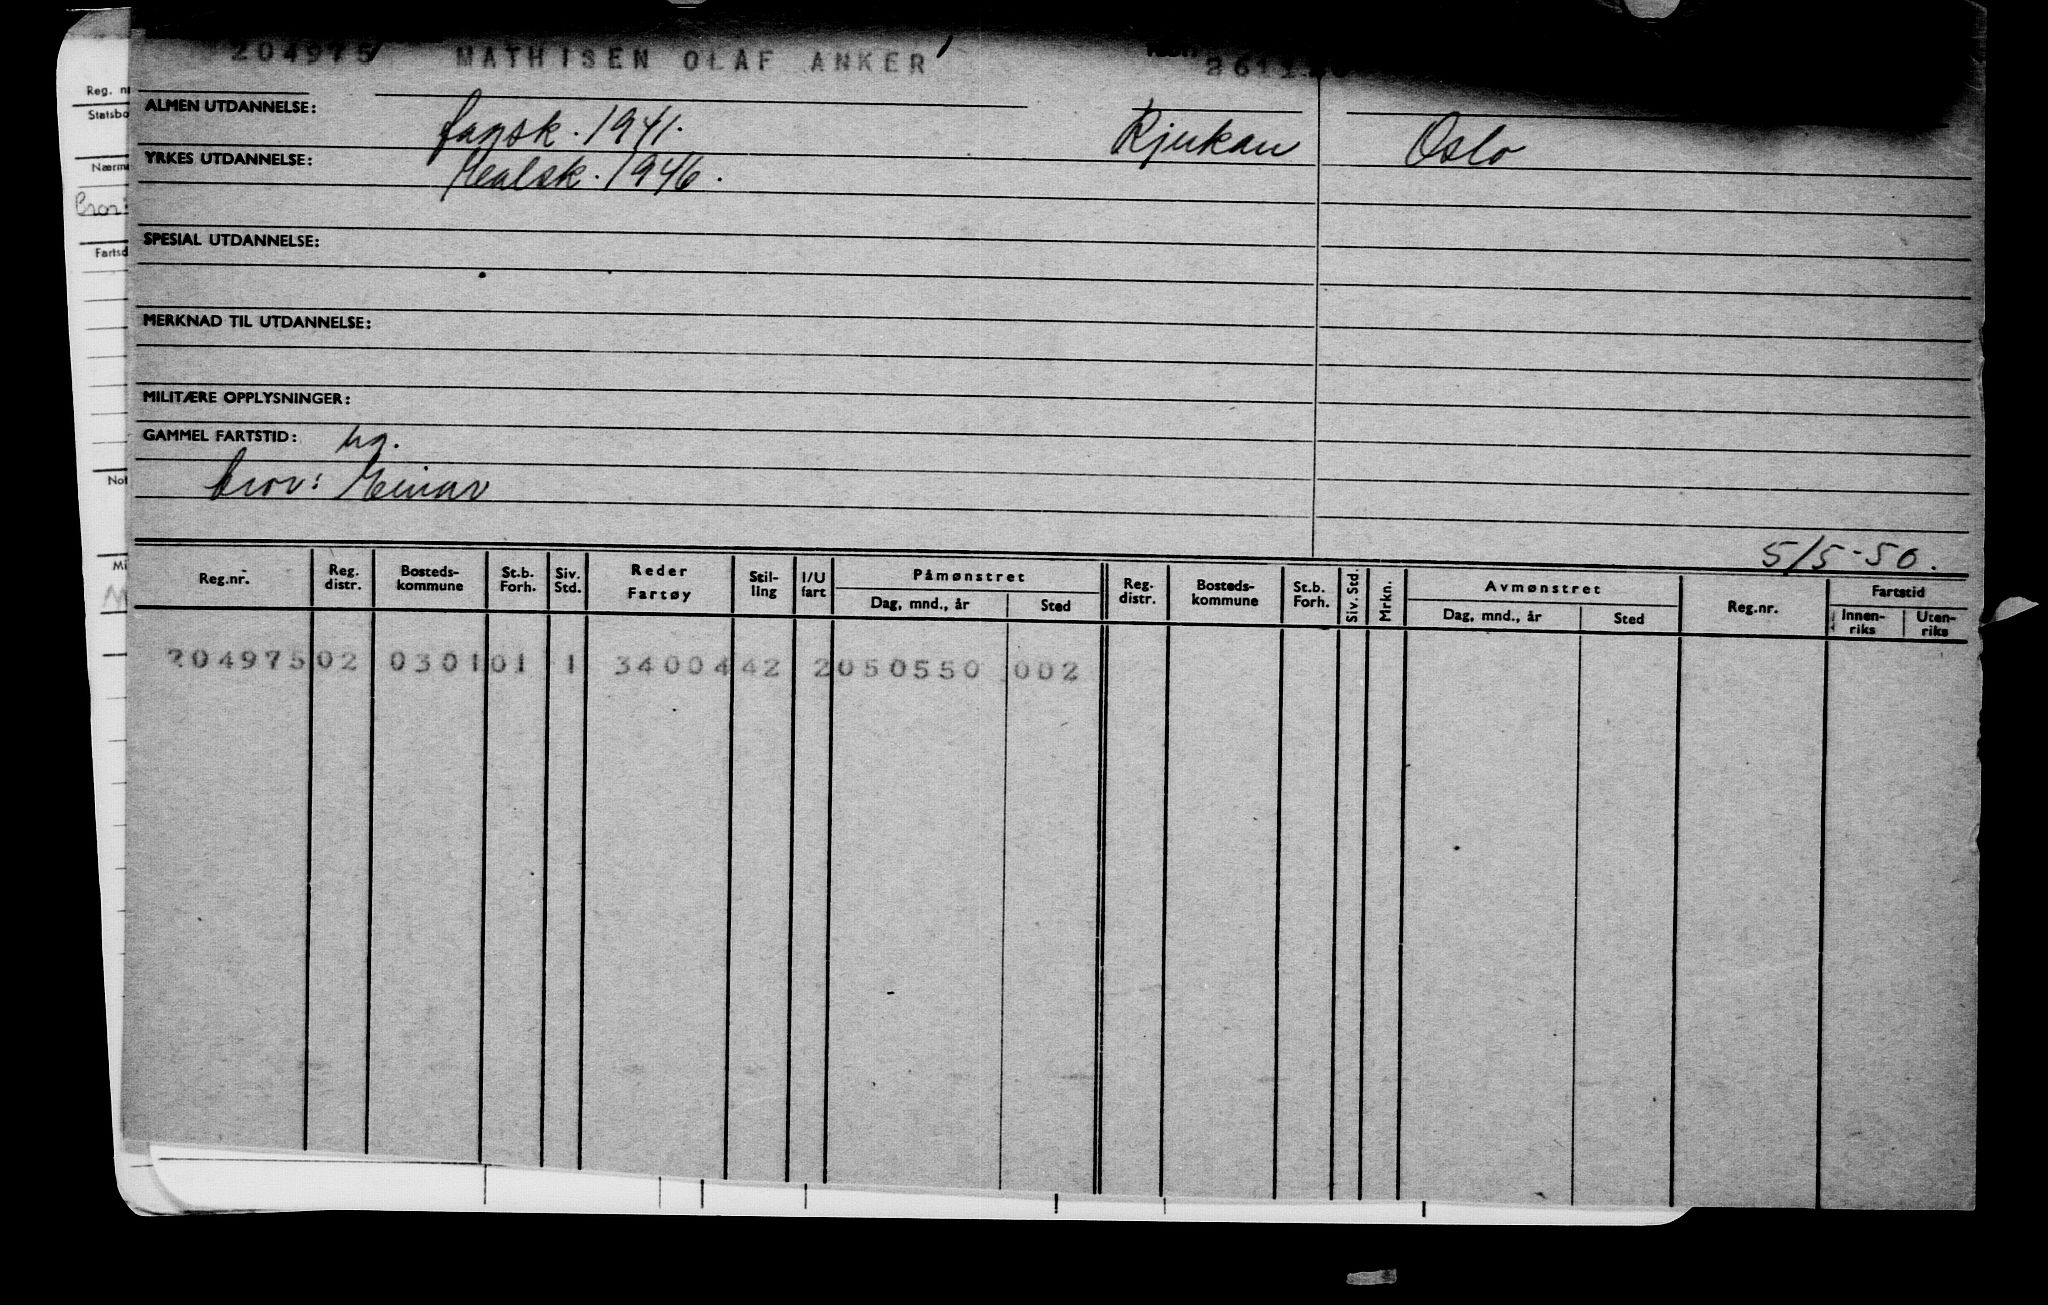 204975 MATHISEN OLAF ANKER
ALMEN UTDANNELSE: fagsk. 1941. Rjukan Oslo
YRKES UTDANNELSE: Realsk. 1946.
SPESIAL UTDANNELSE:
MERKNAD TIL UTDANNELSE:
MILITÆRE OPPLYSNINGER:
GAMMEL FARTSTID: ug.
bror: Einar
5/5-50.
Reg.nr. Reg. distr. Bosteds-kommune St.b. Forh. Siv. Std. Reder Fartøy Stil-ling I/U fart Påmønstret Dag, mnd., år Sted Reg. distr. Bosteds-kommune St.b. Forh. Siv. Std. Mrkn. Avmønstret Dag, mnd., år Sted Reg.nr. Fartstid Innen-riks Uten-riks
204975 02 0301 01 1 34004 42 2 050550 002
Reg. n
Statsbo
Nærm
Bror:
Fartsd
Not
Mi
M